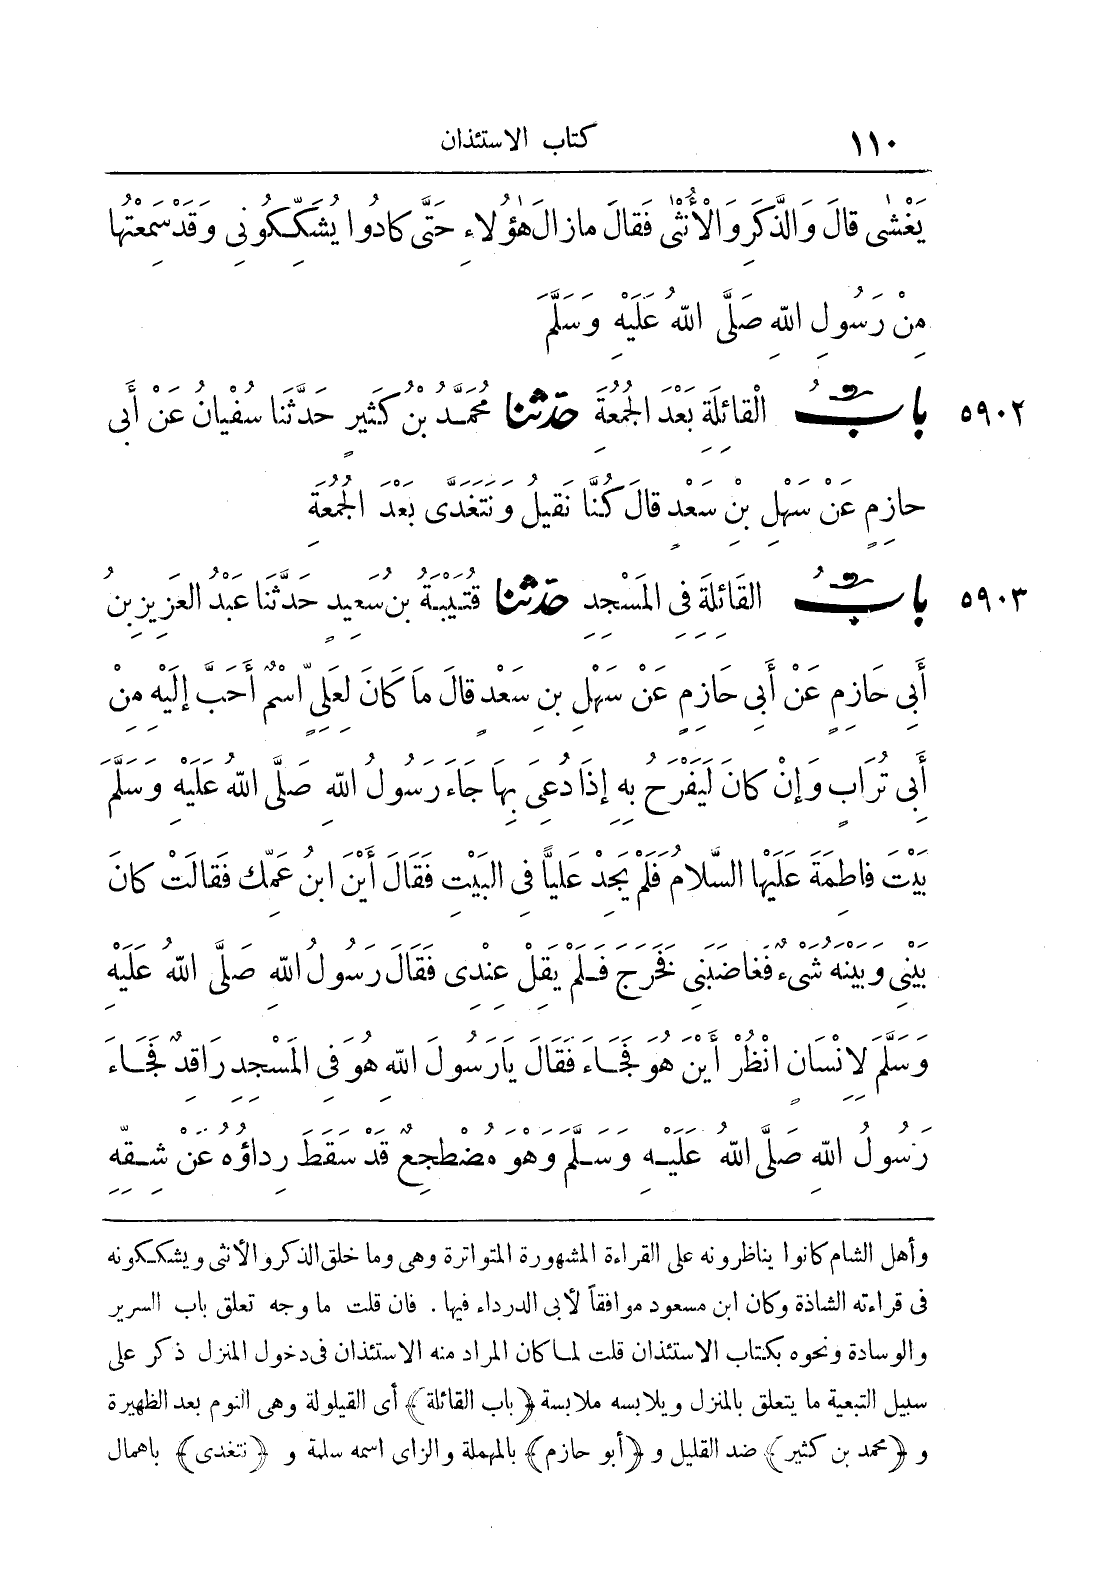 ١١٠ كتاب الاستئذان
يَغْشَى قالَ وَالذَّكَرِ وَالْأُنْثَى فَقالَ مازالَ هٰؤُلاءِ حَتَّى كادُوا يُشَكِّكُونِى وَقَدْ سَمِعْتُها
مِنْ رَسُولِ اللهِ صَلَّى اللهُ عَلَيْهِ وَسَلَّمَ
٥٩٠٢ بابُ الْقائِلَةِ بَعْدَ الجُمُعَةِ حَدَّثَنا مُحَمَّدُ بْنُ كَثيرٍ حَدَّثَنا سفْيانُ عَنْ أَبى
حازِمٍ عَنْ سَهْلِ بْنِ سَعْدٍ قالَ كُنَّا نَقيلُ وَنَتَغَدَّى بَعْدَ الجُمُعَةِ
٥٩٠٣ بابُ القَائِلَةِ فِى المَسْجِدِ حَدَّثَنا قُتَيْبَةُ بن سَعِيدٍ حَدَّثَنَا عَبْدُ العَزيزِ بن
أَبِى حَازِمٍ عَنْ أَبِى حَازِمٍ عَنْ سَهْلِ بنِ سَعْدٍ قالَ مَا كَانَ لِعَلِىٍّ اسْمٌ أَحَبَّ إِلَيْهِ مِنْ
أَبِى تُرَابٍ وَإِنْ كانَ لَيَفْرَحُ بِهِ إِذَا دُعِىَ بِهَا جَاءَ رَسُولُ اللهِ صَلَّى اللهُ عَلَيْهِ وَسَلَّمَ
بَيْتَ فاطِمَةَ عَلَيْها السَّلامُ فَلَمْ يَجِدْ عَلِيًّا فِى البَيْتِ فَقَالَ أَيْنَ ابنُ عَمِّكِ فَقالَتْ كانَ
بَيْنِى وَبَيْنَهُ شَىْءٌ فَغَاضَبَنِى فَخَرَجَ فَلَمْ يَقِلْ عِنْدِى فَقَالَ رَسُولُ اللهِ صَلَّى اللهُ عَلَيْهِ
وَسَلَّمَ لِإِنْسَانٍ انْظُرْ أَيْنَ هُوَ فَجَاءَ فَقَالَ يا رَسُولَ اللهِ هُوَ فِى المَسْجِدِ رَاقِدٌ فَجَاءَ
رَسُولُ اللهِ صَلَّى اللهُ عَلَيْهِ وَسَلَّمَ وَهْوَ مُضْطَجِعٌ قَدْ سَقَطَ رِداؤُهُ عَنْ شِقِّهِ
وأهل الشام كانوا يناظرونه على القراءة المشهورة المتواترة وهى وما خلق الذكر والأنثى ويشككونه
فى قراءته الشاذة وكان ابن مسعود موافقاً لأبى الدرداء فيها . فان قلت ما وجه تعلق باب السرير
والوسادة ونحوه بكتاب الاستئذان قلت لما كان المراد منه الاستئذان فى دخول المنزل ذكر على
سبيل التبعية ما يتعلق بالمنزل ويلابسه ملابسة ﴿باب القائلة﴾ أى القيلولة وهى النوم بعد الظهيرة
و ﴿محمد بن كثير﴾ ضد القليل و ﴿أبو حازم﴾ بالمهملة والزاى اسمه سلمة و ﴿نتغدى﴾ باهمال